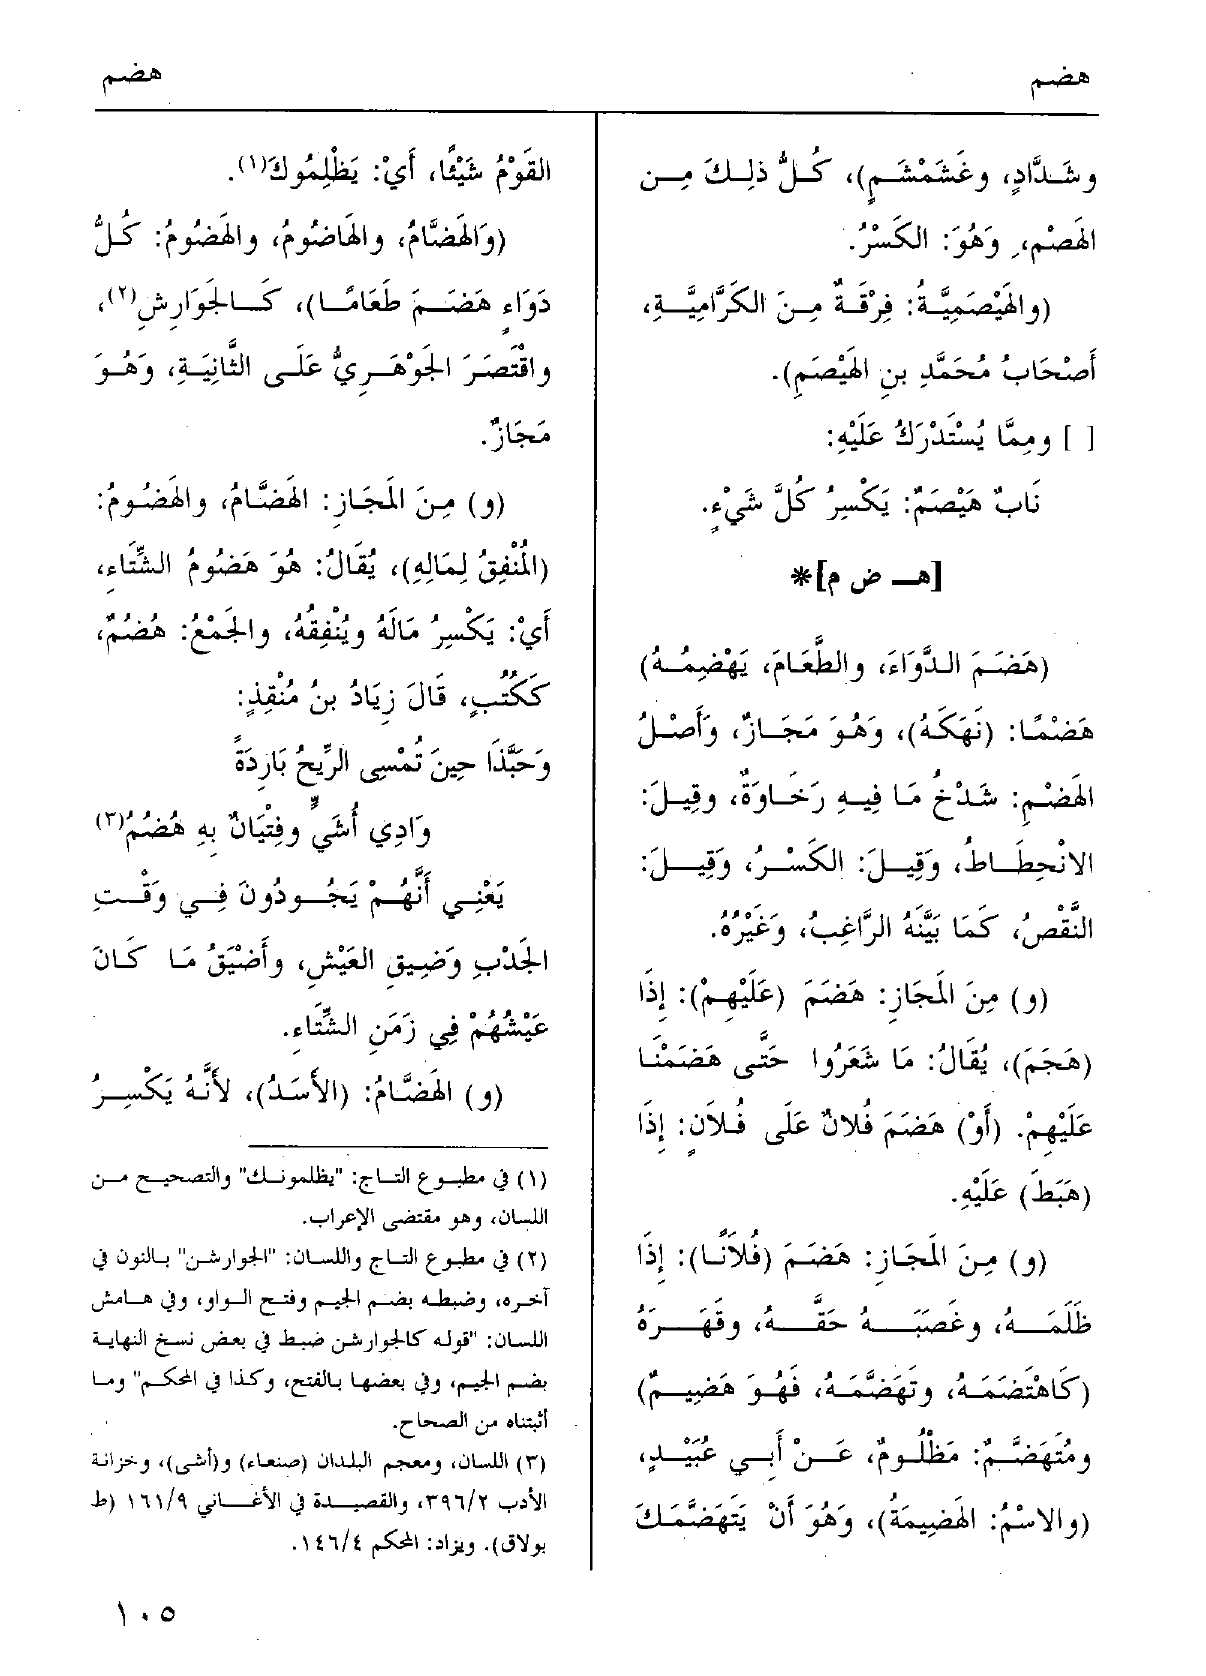 هضم
هضم
وشَدَّادٍ، وغَشَمْشَمٍ)، كُلُّ ذلِكَ مِن
الهَصْمِ، وَهُوَ: الكَسْرُ.
(والهَيْصَمِيَّةُ: فِرْقَةٌ مِنَ الكَرَّامِيَّةِ،
أَصْحَابُ مُحَمَّدِ بنِ الهَيْصَمِ).
[ ] ومِمَّا يُسْتَدْرَكُ عَلَيْهِ:
نَابٌ هَيْصَمٌ: يَكْسِرُ كُلَّ شَيْءٍ.
[هـ ض م]*
(هَضَمَ الدَّوَاءَ، والطَّعَامَ، يَهْضِمُهُ)
هَضْمًا: (نَهَكَهُ)، وَهُوَ مَجَازٌ، وَأَصْلُ
الهَضْمِ: شَدْخُ مَا فِيهِ رَخَاوَةٌ، وقِيلَ:
الانْحِطَاطُ، وَقِيلَ: الكَسْرُ، وَقِيلَ:
النَّقْصُ، كَمَا بَيَّنَهُ الرَّاغِبُ، وَغَيْرُهُ.
(و) مِنَ المَجَازِ: هَضَمَ (عَلَيْهِمْ): إِذَا
(هَجَمَ)، يُقَالُ: مَا شَعَرُوا حَتَّى هَضَمْنَا
عَلَيْهِمْ. (أَوْ) هَضَمَ فُلانٌ عَلَى فُلاَنٍ: إِذَا
(هَبَطَ) عَلَيْهِ.
(و) مِنَ المَجَازِ: هَضَمَ (فُلاَنًا): إِذَا
ظَلَمَهُ، وغَصَبَهُ حَقَّهُ، وقَهَرَهُ
(كَاهْتَضَمَهُ، وتَهَضَّمَهُ، فَهُوَ هَضِيمٌ)
ومُتَهَضَّمٌ: مَظْلُومٌ، عَنْ أَبِي عُبَيْدٍ،
(والاسْمُ: الهَضِيمَةُ)، وَهُوَ أَنْ يَتَهَضَّمَكَ
القَوْمُ شَيْئًا، أَيْ: يَظْلِمُوكَ(١).
(وَالهَضَّامُ، والهَاضُومُ، والهَضُومُ: كُلُّ
دَوَاءٍ هَضَمَ طَعَامًا)، كَالجَوَارِشِ(٢)،
واقْتَصَرَ الجَوْهَرِيُّ عَلَى الثَّانِيَةِ، وَهُوَ
مَجَازٌ.
(و) مِنَ المَجَازِ: الهَضَّامُ، والهَضُومُ:
(المُنْفِقُ لِمَالِهِ)، يُقَالُ: هُوَ هَضُومُ الشِّتَاءِ،
أَيْ: يَكْسِرُ مَالَهُ ويُنْفِقُهُ، والجَمْعُ: هُضُمٌ،
كَكُتُبٍ، قَالَ زِيَادُ بنُ مُنْقِذٍ:
وَحَبَّذَا حِينَ تُمْسِى الرِّيحُ بَارِدَةً
وَادِي أُشَيٍّ وفِتْيَانٌ بِهِ هُضُمُ(٣)
يَعْنِي أَنَّهُمْ يَجُودُونَ فِي وَقْتِ
الجَدْبِ وَضِيقِ العَيْشِ، وأَضْيَقُ مَا كَانَ
عَيْشُهُمْ فِي زَمَنِ الشِّتَاءِ.
(و) الهَضَّامُ: (الأَسَدُ)، لأَنَّهُ يَكْسِرُ
(١) في مطبوع التاج: "يظلمونك" والتصحيح من
اللسان، وهو مقتضى الإعراب.
(٢) في مطبوع التاج واللسان: "الجوارشن" بالنون في
آخره، وضبطه بضم الجيم وفتح الواو، وفي هامش
اللسان: "قوله كالجوارشن ضبط في بعض نسخ النهاية
بضم الجيم، وفي بعضها بالفتح، وكذا في المحكم" وما
أثبتناه من الصحاح.
(٣) اللسان، ومعجم البلدان (صنعاء) و(أشى)، وخزانة
الأدب ٣٩٦/٢، والقصيدة في الأغاني ١٦١/٩ (ط
بولاق). ويزاد: المحكم ١٤٦/٤.
١٠٥